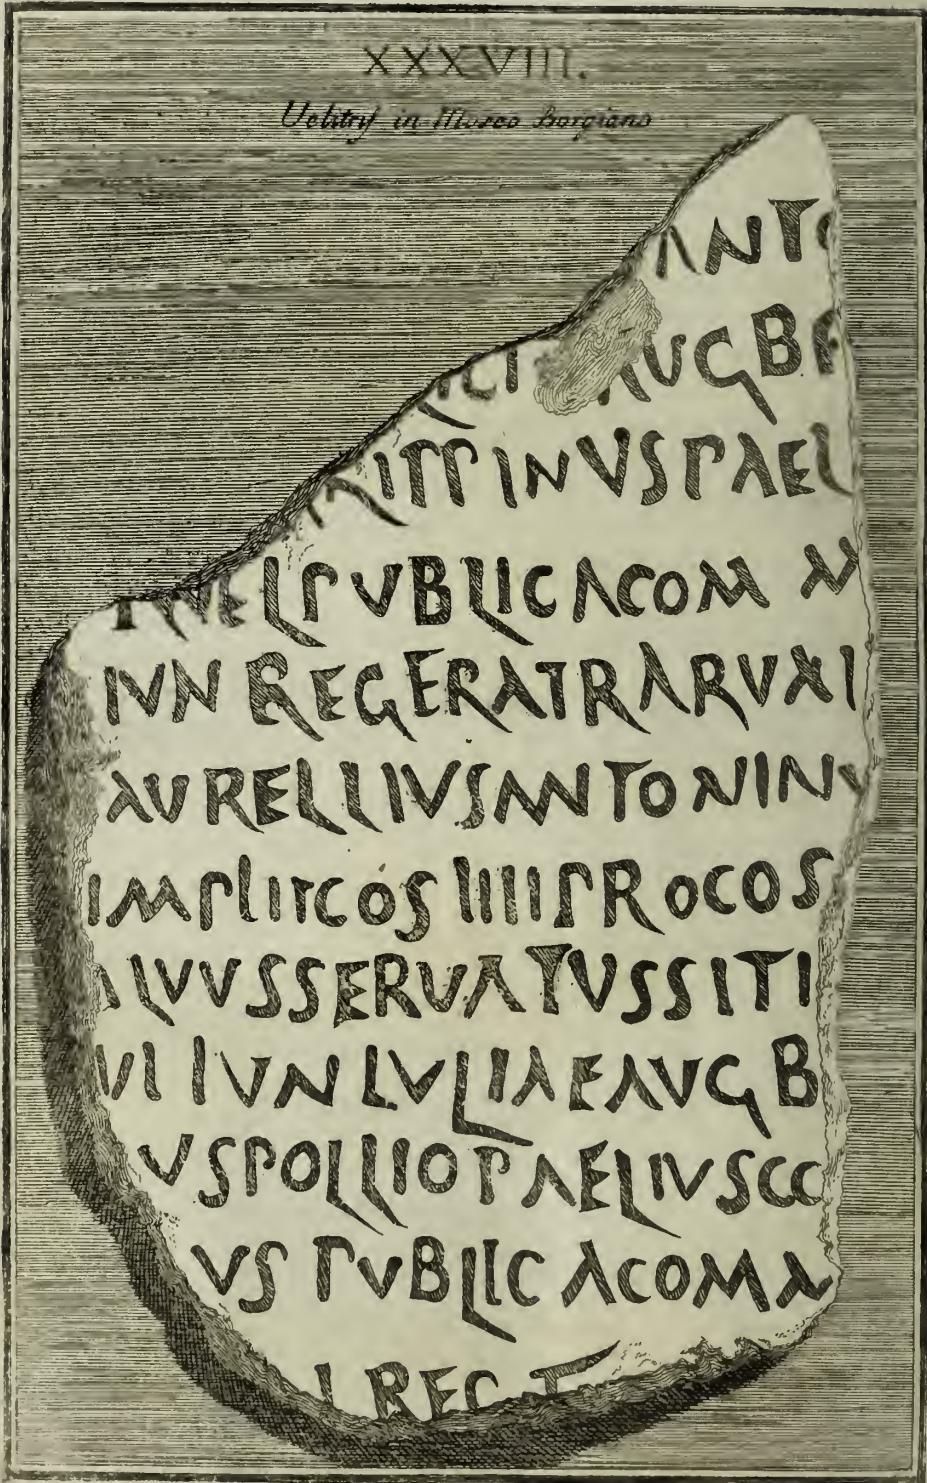 XXXVIII.
Uelitris in Museo Borgiano
ANTO
ICI AUG B F
RIPP INUS P AEL
ELPUBLIC ACOM M
IVN REG ERATR ARVAI
AURELLIVSANTONINV
IMPIIIPCOS IIIIPROCOS
ALVVSSERVATUSSITI
VI IVNLVLIAEAVG B
VSPOLLIO P AELIVSCC
VS PVBLIC ACOMA
I REG T